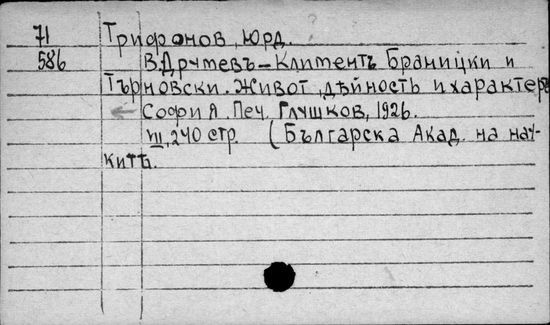 71 Трифонов, Юрд.
586 В. Друмевъ – Климентъ Браницки и
Търновски. Живот, дѣйность и характеръ
← София. Печ. Глушков, 1926.
VIII, 240 стр. (Българска Акад. на нау-
китѣ.